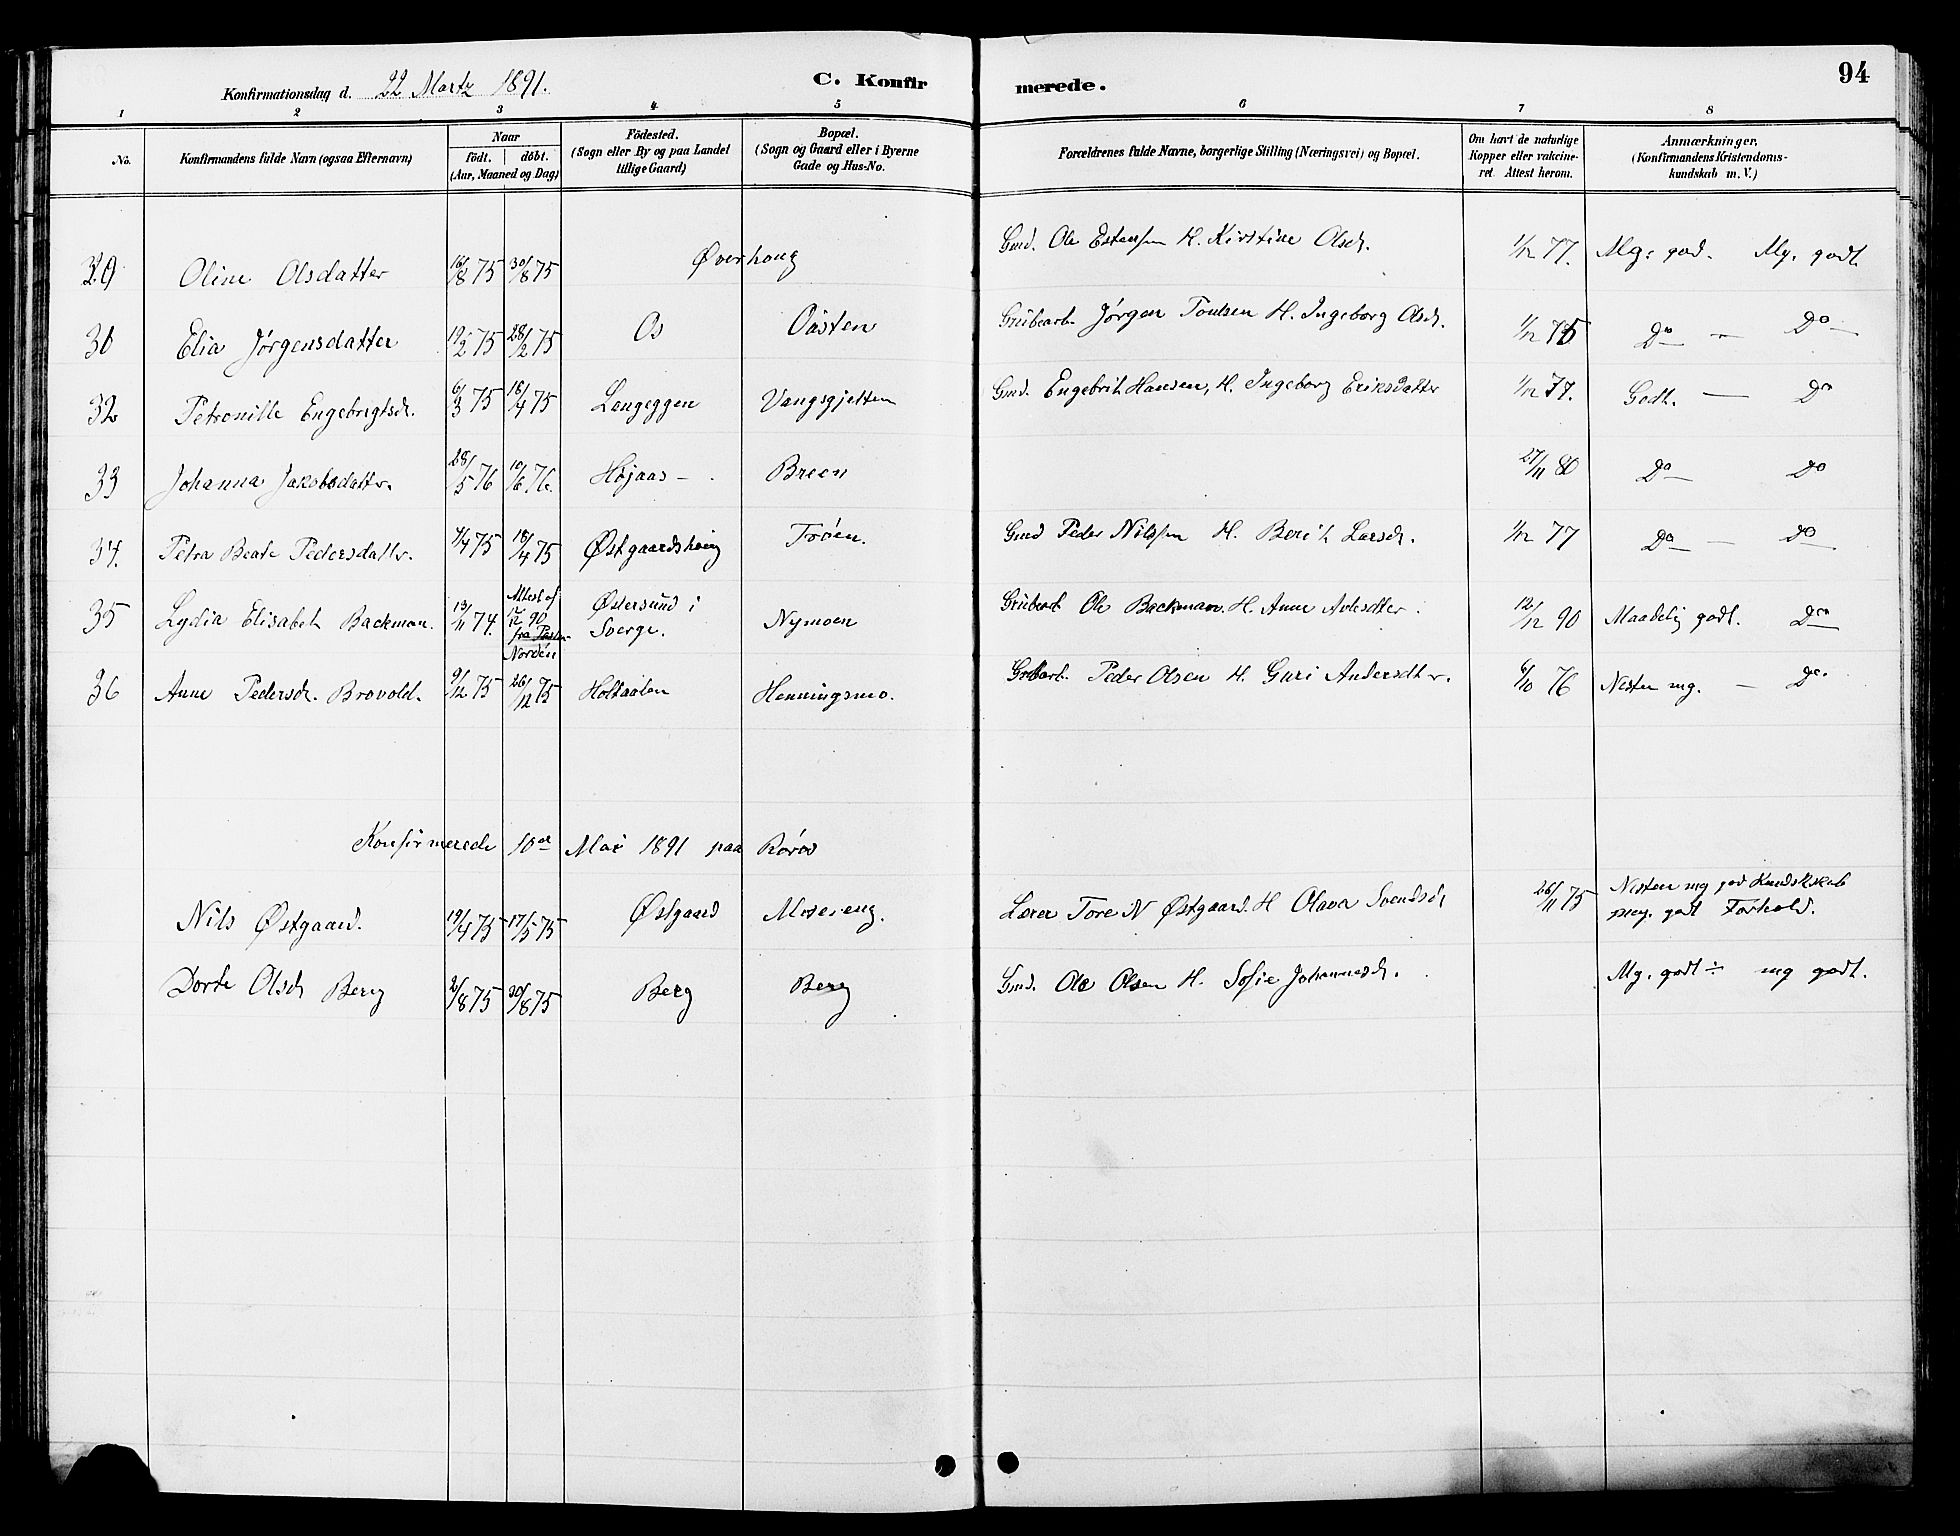 94
Konfirmationsdag d. 22 Martz 1891. C. Konfirmerede.
1 2 3 4 5 6 7 8
No. Konfirmandens fulde Navn (ogsaa Efternavn) Naar født. døbt. (Aar, Maaned og Dag) Födested. (Sogn eller By og paa Landet tillige Gaard) Bopæl. (Sogn og Gaard eller i Byerne Gade og Hus-No. Forældrenes fulde Navne, borgerlige Stilling (Næringsvei) og Bopæl. Om havt de naturlige Kopper eller vakcineret. Attest herom. Anmærkninger. (Konfirmandens Kristendomskundskab m. V.)
29 Oline Olsdatter 16/8 75 30/8 75 Øverhoug Gmd. Ole Estensen H. Kirstine Olsd. 1/12 77. Mg. god. Mg. godt.
30 Elia Jørgensdatter 19/2 75 28/2 75 Os Oästen Grübearb. Jørgen Poulsen H. Ingeborg Olsd. 1/12 75 Do — Do
32 Petronille Engebrigtsd. 6/3 75 18/4 75 Langeggen Vangsgjetten Gmd. Engebrit Hansen, H. Ingeborg Eriksdatter 1/12 77. Godt. — Do
33 Johanna Jakobsdatter. 28/5 76 10/6 76. Højaas — Breen 27/11 80 Do Do
34. Petra Beate Pedersdattr. 4/4 75 18/4 75 Østgaardshoug Trøen. Gmd Peder Nilssen H. Berit Larsd. 1/12 77 Do — Do
35 Lydia Elisabeth Backman. 13/11 74. Attest af 12/12 90 fra Pastor Nordén Østersund i Sverge. Nymoen Grübearb Ole Backman. H. Anne 12/12 90 Maadelig godt. Do
36 Anne Pedersd. Brovold. 9/12 75 26/12 75 Holtaalen Henningsmo. Grubarb. Peder Olsen H. Guri Andersdtr. 6/10 76 Nesten mg. — Do.
Konfirmerede 10de Mai 1891 paa Röros
Nils Østgaard. 19/4 75 17/5 75 Østgaard Moseeng. Lærer Tore N Østgaard. H Olava Svendsd 26/11 75 Nesten mg god Kundskab
meg. godt Forhold.
Dorte Olsd Berg 2/8 75 30/8 75 Berg Berg Gmd. Ole Olsen H. Sofie Johannesd. Mg. godt ÷ mg godt.